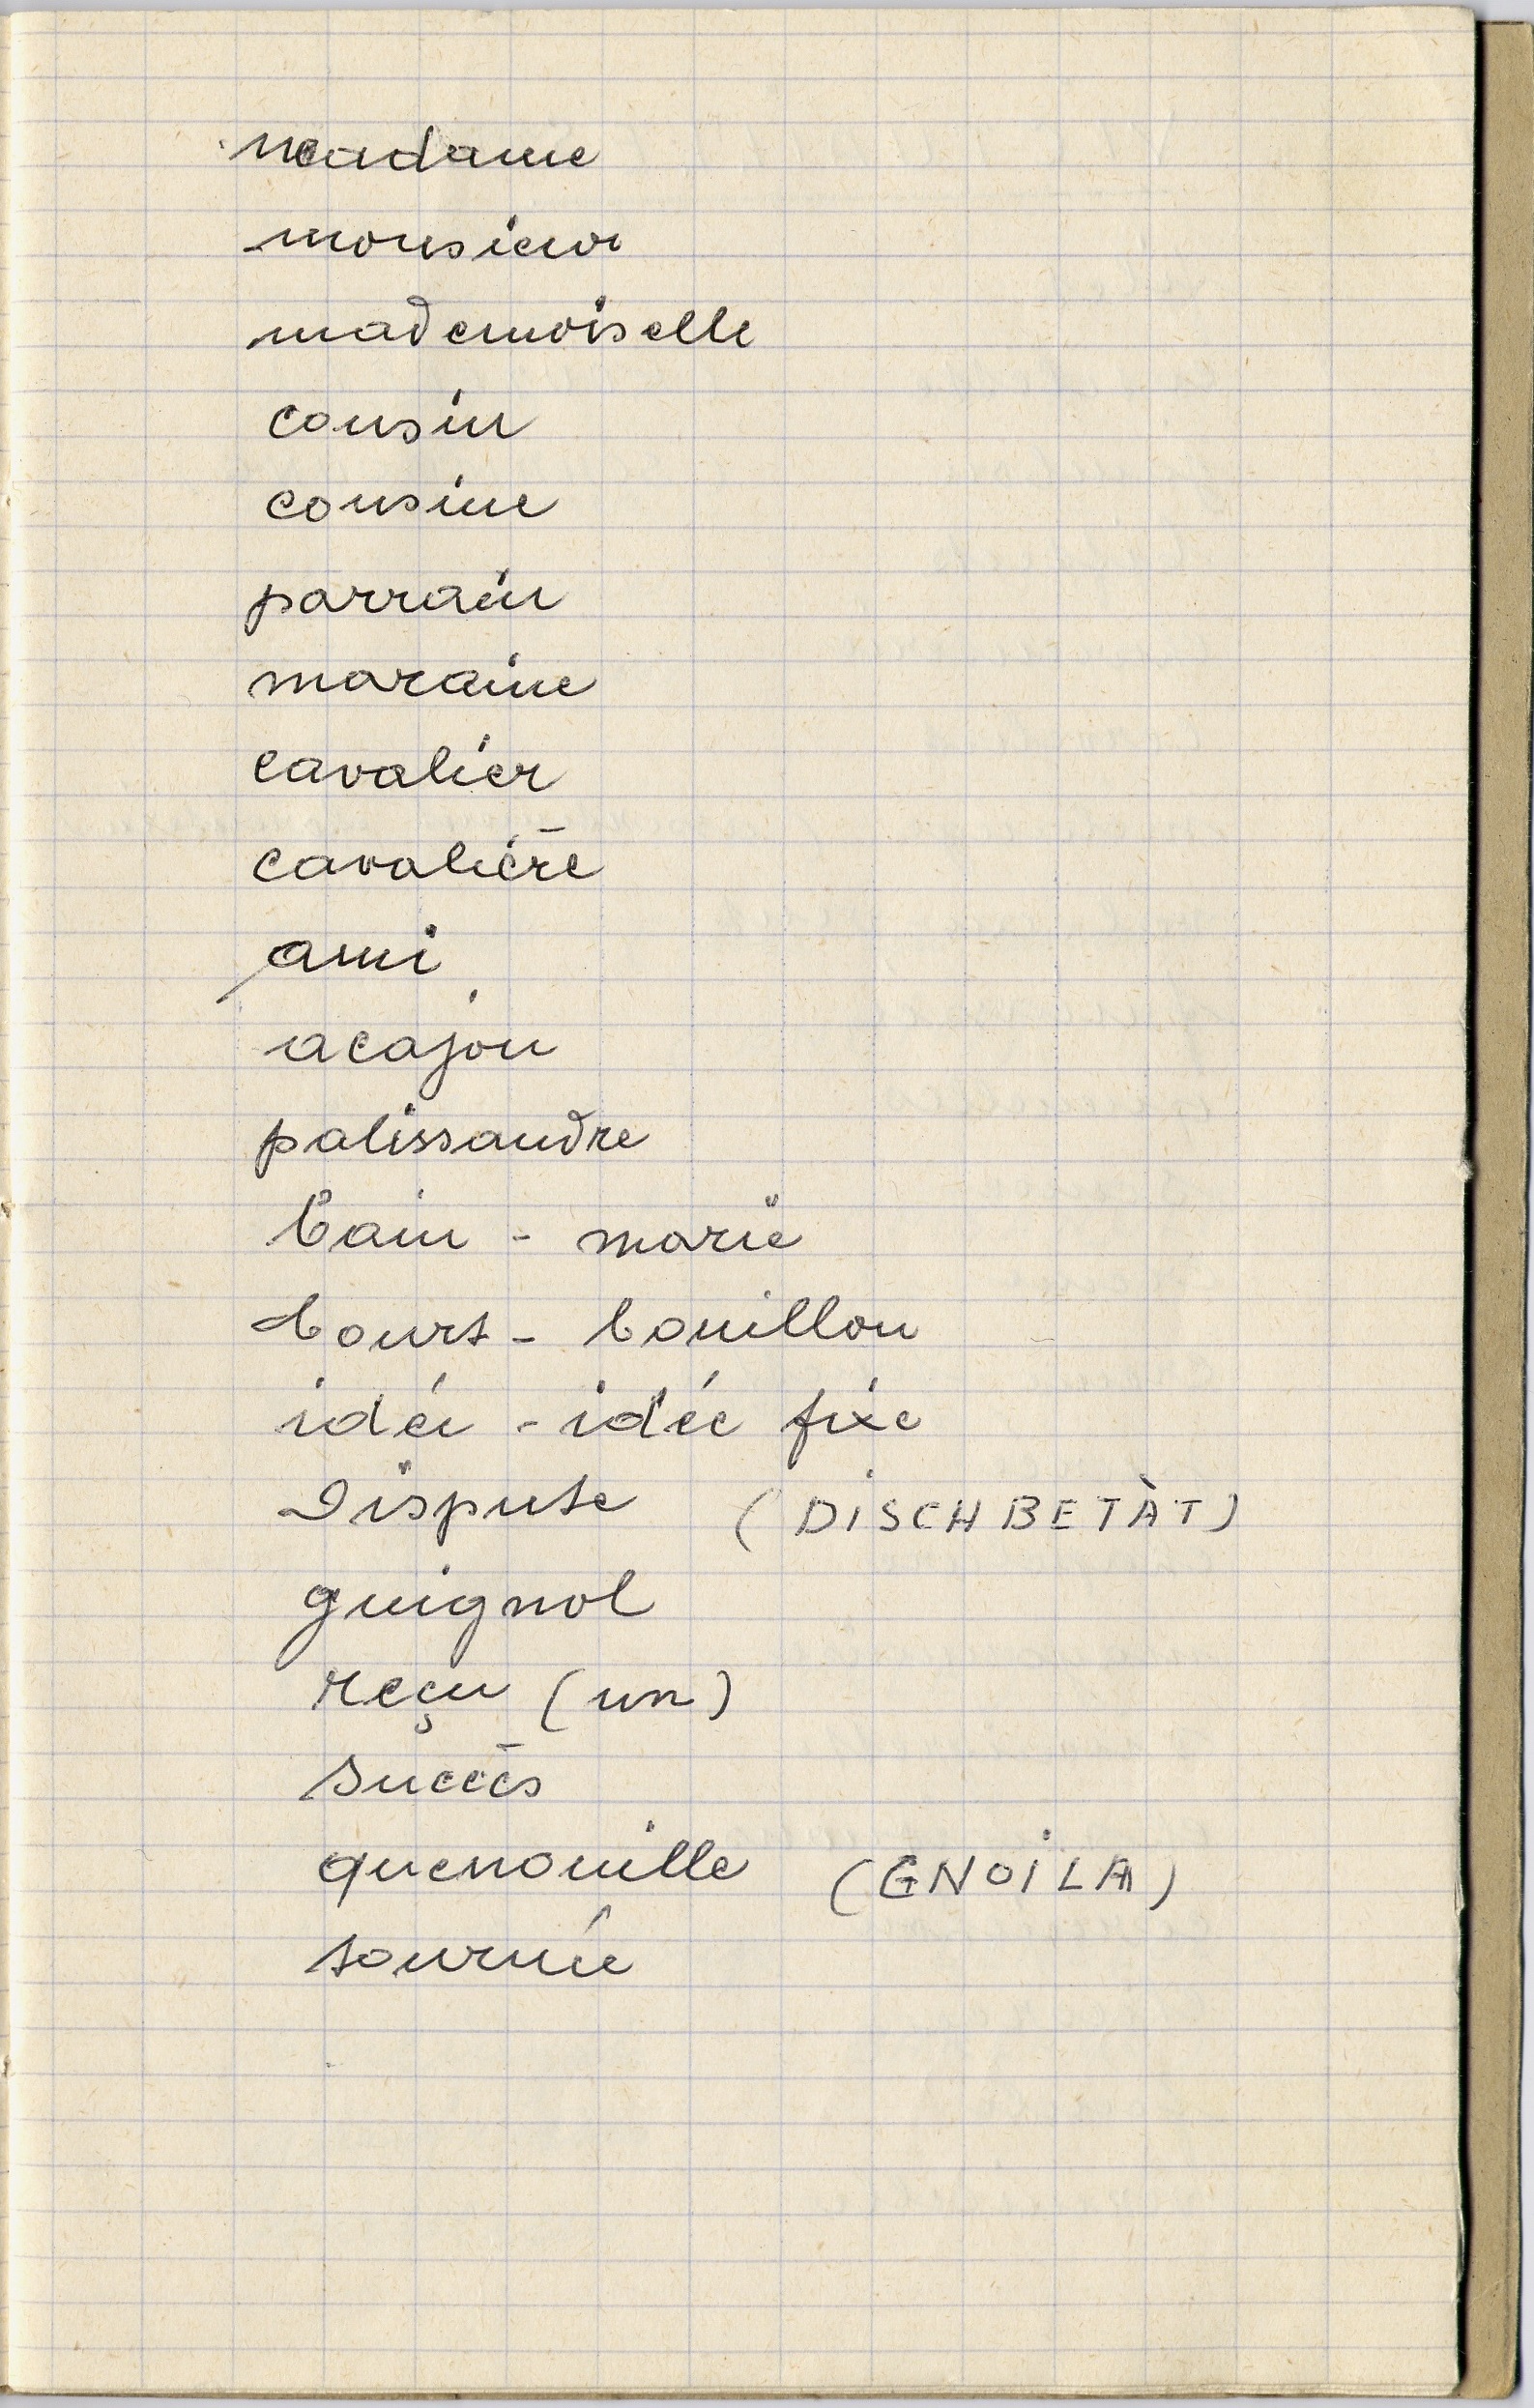 madame
monsieur
mademoiselle
cousin
cousine
parrain
maraine
cavalier
cavalière
ami
acajou
palissandre
bain - marie
court - bouillon
idée - idée fixe
Dispute (DISCHBETÀT)
guignol
reçu (un)
succès
quenouille (GNOILA)
tournée